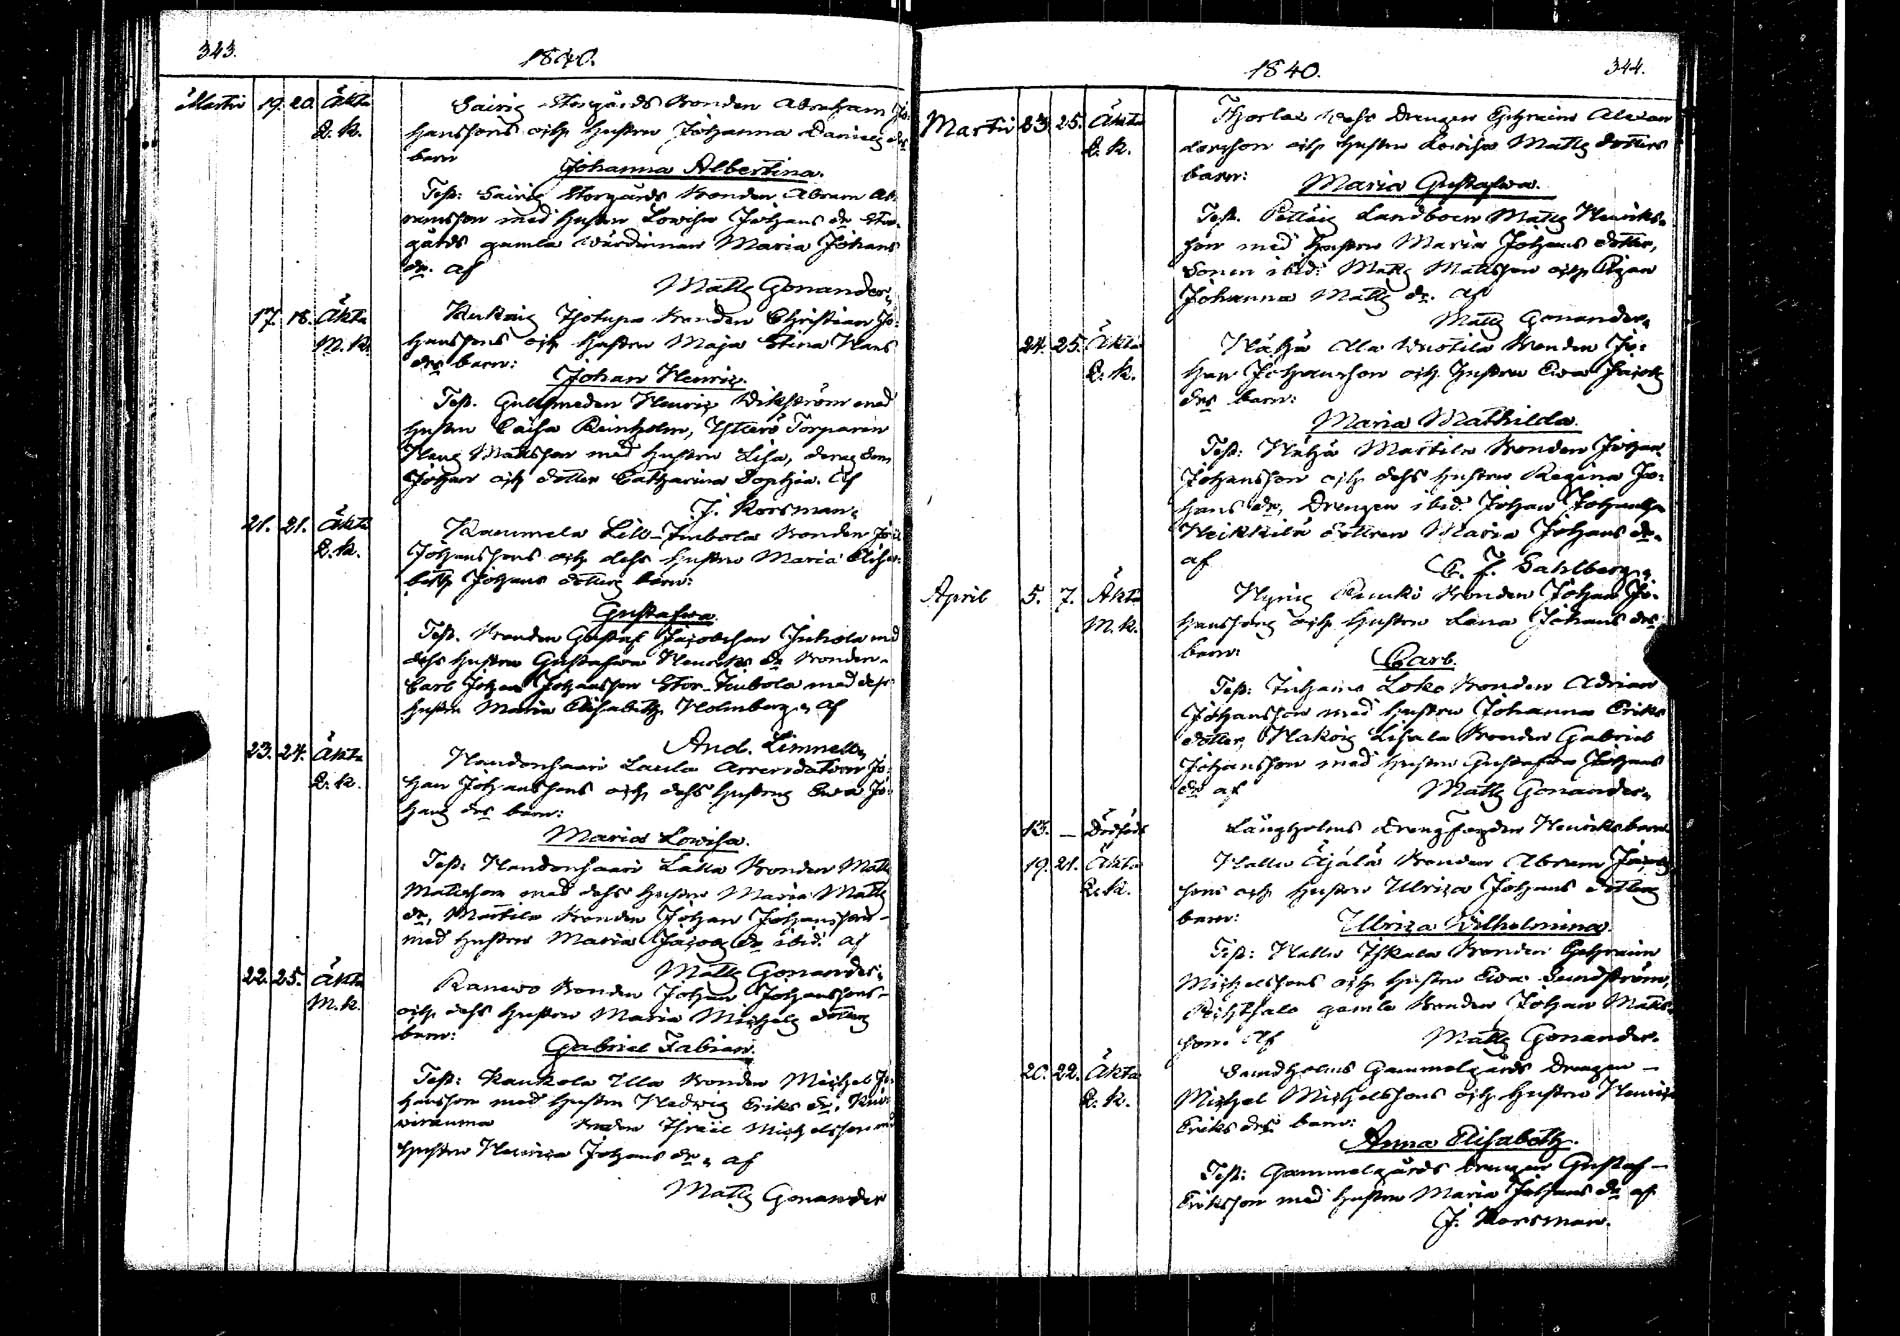 343.
1840.
Martii 19. 20. Äkta Sairis Storgårds Bonden Abraham Jo-
Q. K. hanssons och Hustru Johanna Daniels drs
barn
Johanna Albertina.
Test: Sairis Storgårds Bonden Abram Ab-
ramsson med Hustru Lowisa Johans dr Stor-
gårds gamla Wärdinnan Maria Johans
dr. af
Matts Gonander.
17. 18. Äkta Bonden Christian Jo-
M. K. hanssons och Hustru Maja Stina Hans
drs barn:
Johan Henric.
Test. Gullsmeden Henric Wikström med
Hustru Caisa Reinholm, Ytterö Torparen
Hans Mattsson med Hustru Lisa, deras Son
Johan och dotter Catharina Sophia. Af
J. Korsman.
21. 21. Äkta Kaumela Lill-Jubola Bonden Joh.
Q. K. Johanssons och dess Hustru Maria Elisa-
beth Johans dotters barn:
Gustafwa
Test. Bonden Gustaf Jacobsson Juhola med
dess Hustru Gustafwa Henriks dr Bonden
Carl Johan Johansson Stor-Jubola med dess
Hustru Maria Elisabeth Holmberg, af
And. Limnell.
23. 24. Äkta Handonsaari Laula Arrendatorn Jo-
Q. K. han Johanssons och dess Hustrus Ewa Jo-
hans drs barn:
Maria Lowisa.
Test: Handonsaari Bonden Matts
Mattsson med dess Hustru Maria Matts
dr, Mattila Bonden Johan Johansson
med Hustru Maria Jacobs dr ibid. af
Matts Gonander.
22. 25. Äkta Bonden Johan Johanssons
M. K. och dess Hustru Maria Michels dotters
barn:
Gabriel Fabian.
Test: Kaukola Ulla Bonden Michel Jo-
hansson med Hustru Hedwig Eriks dr, Kui-
wirauma Bonden Israel Michelsson med
Hustru Henrica Johans dr, af
Matts Gonander
1840.
344.
Martii 23. 25. Äkta Drengen Ephraim Alexan-
Q. K. dersson och Hustru Lowisa Matts dotters
barn:
Maria Gustafwa.
Test. Landboen Matts Henriks-
son med Hustru Maria Johans dotter,
Sonen ibid: Matts Mattsson och Pigan
Johanna Matts dr. af
Matts Gonander.
24. 25. Äkta Bonden Jo-
Q. K. han Johansson och Hustru Ewa Jacobs
drs barn:
Maria Mathilda.
Test: Mattila Bonden Johan
Johansson och dess Hustru Regina Jo-
hans dr, Drengen ibid. Johan Johansson
Heikkilä dottren Maria Johans dr.
af
C. J. Sahlberg.
April 5. 7. Äkta Bonden Johan Jo-
M. K. hanssons och Hustru Lena Johans drs
barn:
Carl.
Test: Inhama Loko Bonden Adrian
Johansson med Hustru Johanna Eriks
dotter, Hakois Lisala Bonden Gabriel
Johansson med Hustru Gustafwa Johans
dr af
Matts Gonander.
13. — Dödföd Långholms Drengfogden Henriks barn
19. 21. Äkta Äjälä Bonden Abram Jacobs-
Q. K. sons och Hustru Ulrica Johans dotters
barn:
Ulrica Wilhelmina.
Test: Bonden Ephraim
Michelssons och Hustru Ewa Sundström,
gamle Bonden Johan Matts-
son. Af
Matts Gonander.
20. 22. Äkta Sundholms Gammelgårds Drengen
Q. K. Michel Michelssons och Hustru Henrica
Eriks drs barn:
Anna Elisabeth.
Test: Gammelgårds Drengen Gustaf
Eriksson med Hustru Maria Johans dr af
J. Korsman.